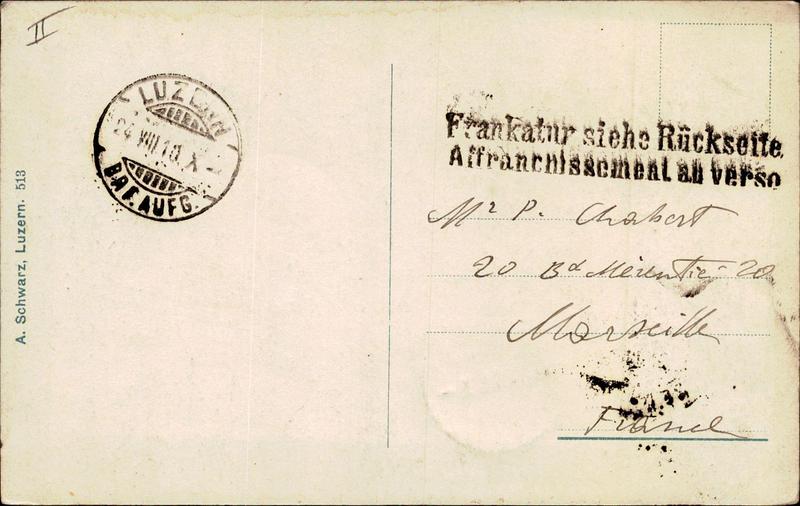 II
LUZERN
24 VIII 10. X
BRF. AUFG.
A. Schwarz, Luzern. 513
Frankatur siehe Rückseite.
Affranchissement au verso
Mr P. Chabert
20 Bd Mérentié 20
Marseille
France